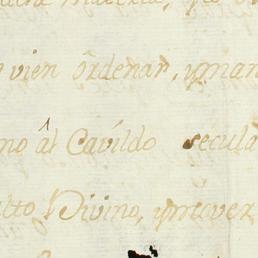 vien ôrdenar, yman
no âl Cavildo secula
lto Divino, ymover